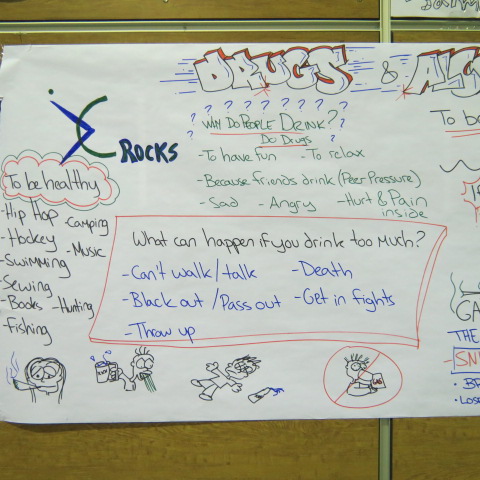 DRUGS & ALC
? ? ? ? ? ? ? ? ? ?
WHY DO PEOPLE DRINK?
DO DRUGS
- To have fun - To relax
- Because friends drink (Peer Pressure)
- Sad - Angry - Hurt & Pain inside
ROCKS
To be healthy
- Hip Hop
- Camping
- Hockey
- Music
- Swimming
- Sewing
- Books
- Hunting
- Fishing
What can happen if you drink too much?
- Can't walk/talk - Death
- Black out / Pass out - Get in fights
- Throw up
GAS
To be
GA
THE
- SN
• BR
• LOSE